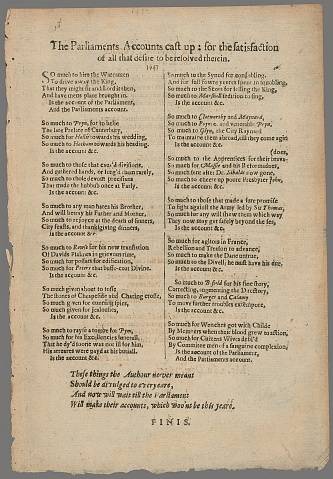 The Parliaments Accounts cast up; for the satisfaction
of all that desire to be resolved therein.
1647
SO much to him the
To drive away the King,
That they might
And have mens place brought in.
Is the account of the Parliament,
And the Parliaments account.
So much to Pryn, for to belie
The late Prelate of Canterbury,
So much for towards his wedding,
So much to towards his heading.
Is the account &c.
So much to those that
And gathered hands, or long'd
So much to those devout
That made the hubbub once at
Is the account &c.
So much to any man hates his Brother,
And will betray his Father and Mother,
So much to rejoyce at the death of sinners,
City feasts, and thanksgiving dinners,
Is the account &c.
So much to Rous for his new translation
Of Davids Psalmes to grievous tune,
So much for for edification,
So much for Peters that buffe-coat Divine.
Is the account &c.
So much given about to tosse
The stones of Cheapeside and Charing crosse,
So much given for the Spies,
So much given for Jealousies,
Is the account &c.
So much to rayse a tombe for Pym,
So much for his Excellencies funerall,
That he dy'd some was the ill for him,
His arrears were payd at his buriall.
Is the account &c.
So much to the Synod for
And for full foure yeeres
So much to the Scots for selling the King,
So much to Marshall sedition to sing,
Is the account &c.
So much to Cleaworthy and Maynard,
So much to Poyntz and venerable Pryn,
So much to Glyn, the City Raynard
To maintaine them abroad, till they come agin
Is the account &c.
(dom,
So much to the Apprentices for their brava-
So much for Massie and his Reformadoes,
So much sent after Dr. now gone,
So much to cheere up poore Presbyter John,
Is the account &c.
So much to those that made a fore promise
To fight against the Army led by Sir Thomas,
So much for any will shew them which way
They now may get safely beyond the seas,
Is the account &c.
So much for agitors in France,
Rebellion and Treason to advance,
So much to make the Dane untrue,
So much to the Divell, he must have his due,
Is the account &c.
So much to for fine story,
Correcting, augmenting the Directory,
So much to Burges and Calamy
To move further troubles
Is the account &c.
So much for Wenches got with Childe
By Members when their blood grew to action,
So much for Citizens Wives
By Committee men of a sanguine complexion,
Is the account of the Parliament,
And the Parliaments account.
These things the Authour never meant
Should be divulged to every eare,
And now will wait till the Parliament
Will make their accounts, which woo'nt be this yeare.
FINIS.